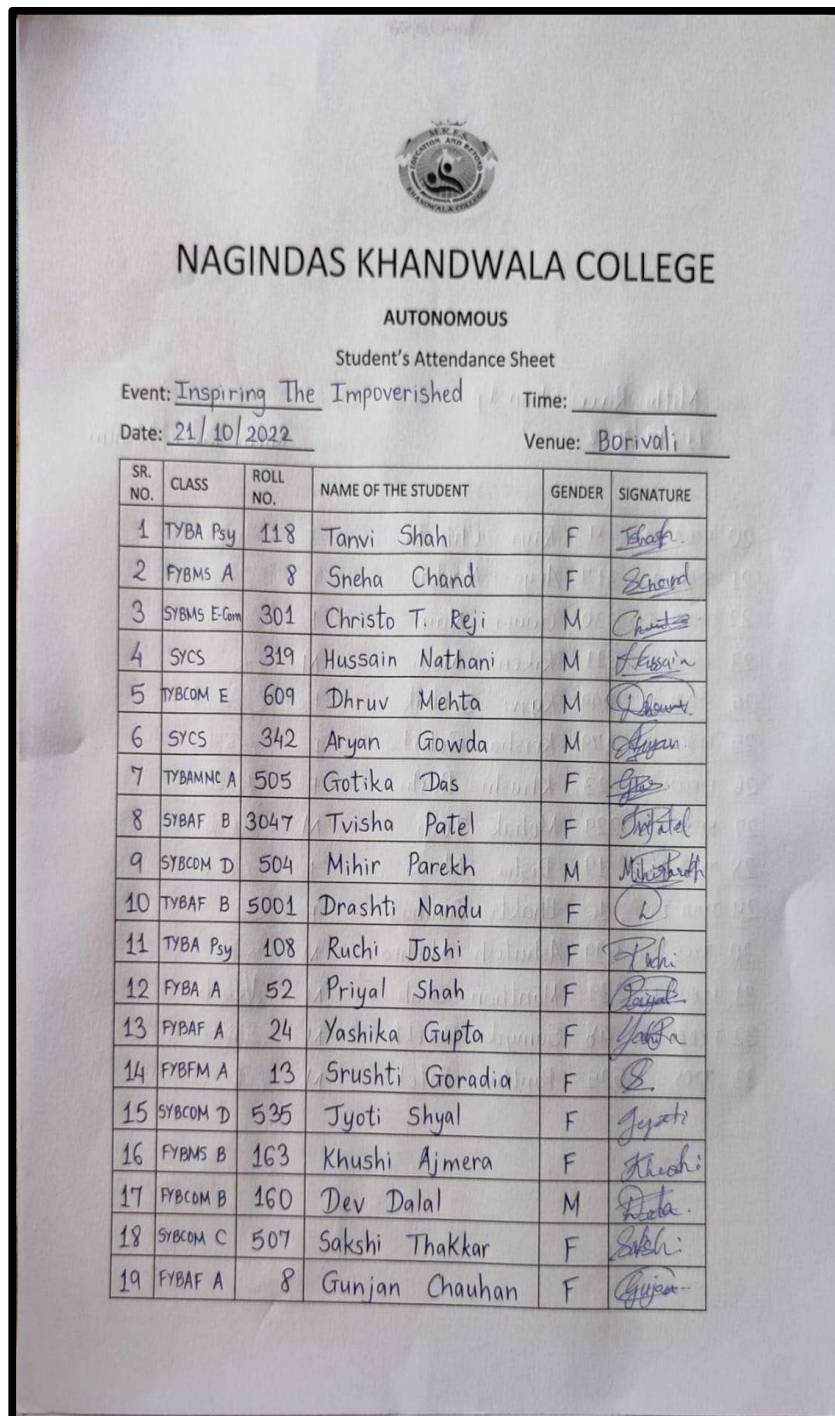 M.K.E.S.
EDUCATION AND BEYOND
KHANDWALA COLLEGE
NAGINDAS KHANDWALA COLLEGE
AUTONOMOUS
Student's Attendance Sheet
Event: Inspiring The Impoverished Time:
Date: 21/10/2022 Venue: Borivali
SR. NO. CLASS ROLL NO. NAME OF THE STUDENT GENDER SIGNATURE
1 TYBA Psy 118 Tanvi Shah F
2 FYBMS A 8 Sneha Chand F SChand
3 SYBMS E-Com 301 Christo T. Reji M
4 SYCS 319 Hussain Nathani M Hussain
5 TYBCOM E 609 Dhruv Mehta M
6 SYCS 342 Aryan Gowda M Aryan
7 TYBAMMC A 505 Gotika Das F
8 SYBAF B 3047 Tvisha Patel F
9 SYBCOM D 504 Mihir Parekh M
10 TYBAF B 5001 Drashti Nandu F
11 TYBA Psy 108 Ruchi Joshi F Ruchi
12 FYBA A 52 Priyal Shah F
13 FYBAF A 24 Yashika Gupta F
14 FYBFM A 13 Srushti Goradia F S.
15 SYBCOM D 535 Jyoti Shyal F Jyoti
16 FYBMS B 163 Khushi Ajmera F Khushi
17 FYBCOM B 160 Dev Dalal M
18 SYBCOM C 507 Sakshi Thakkar F Sakshi
19 FYBAF A 8 Gunjan Chauhan F